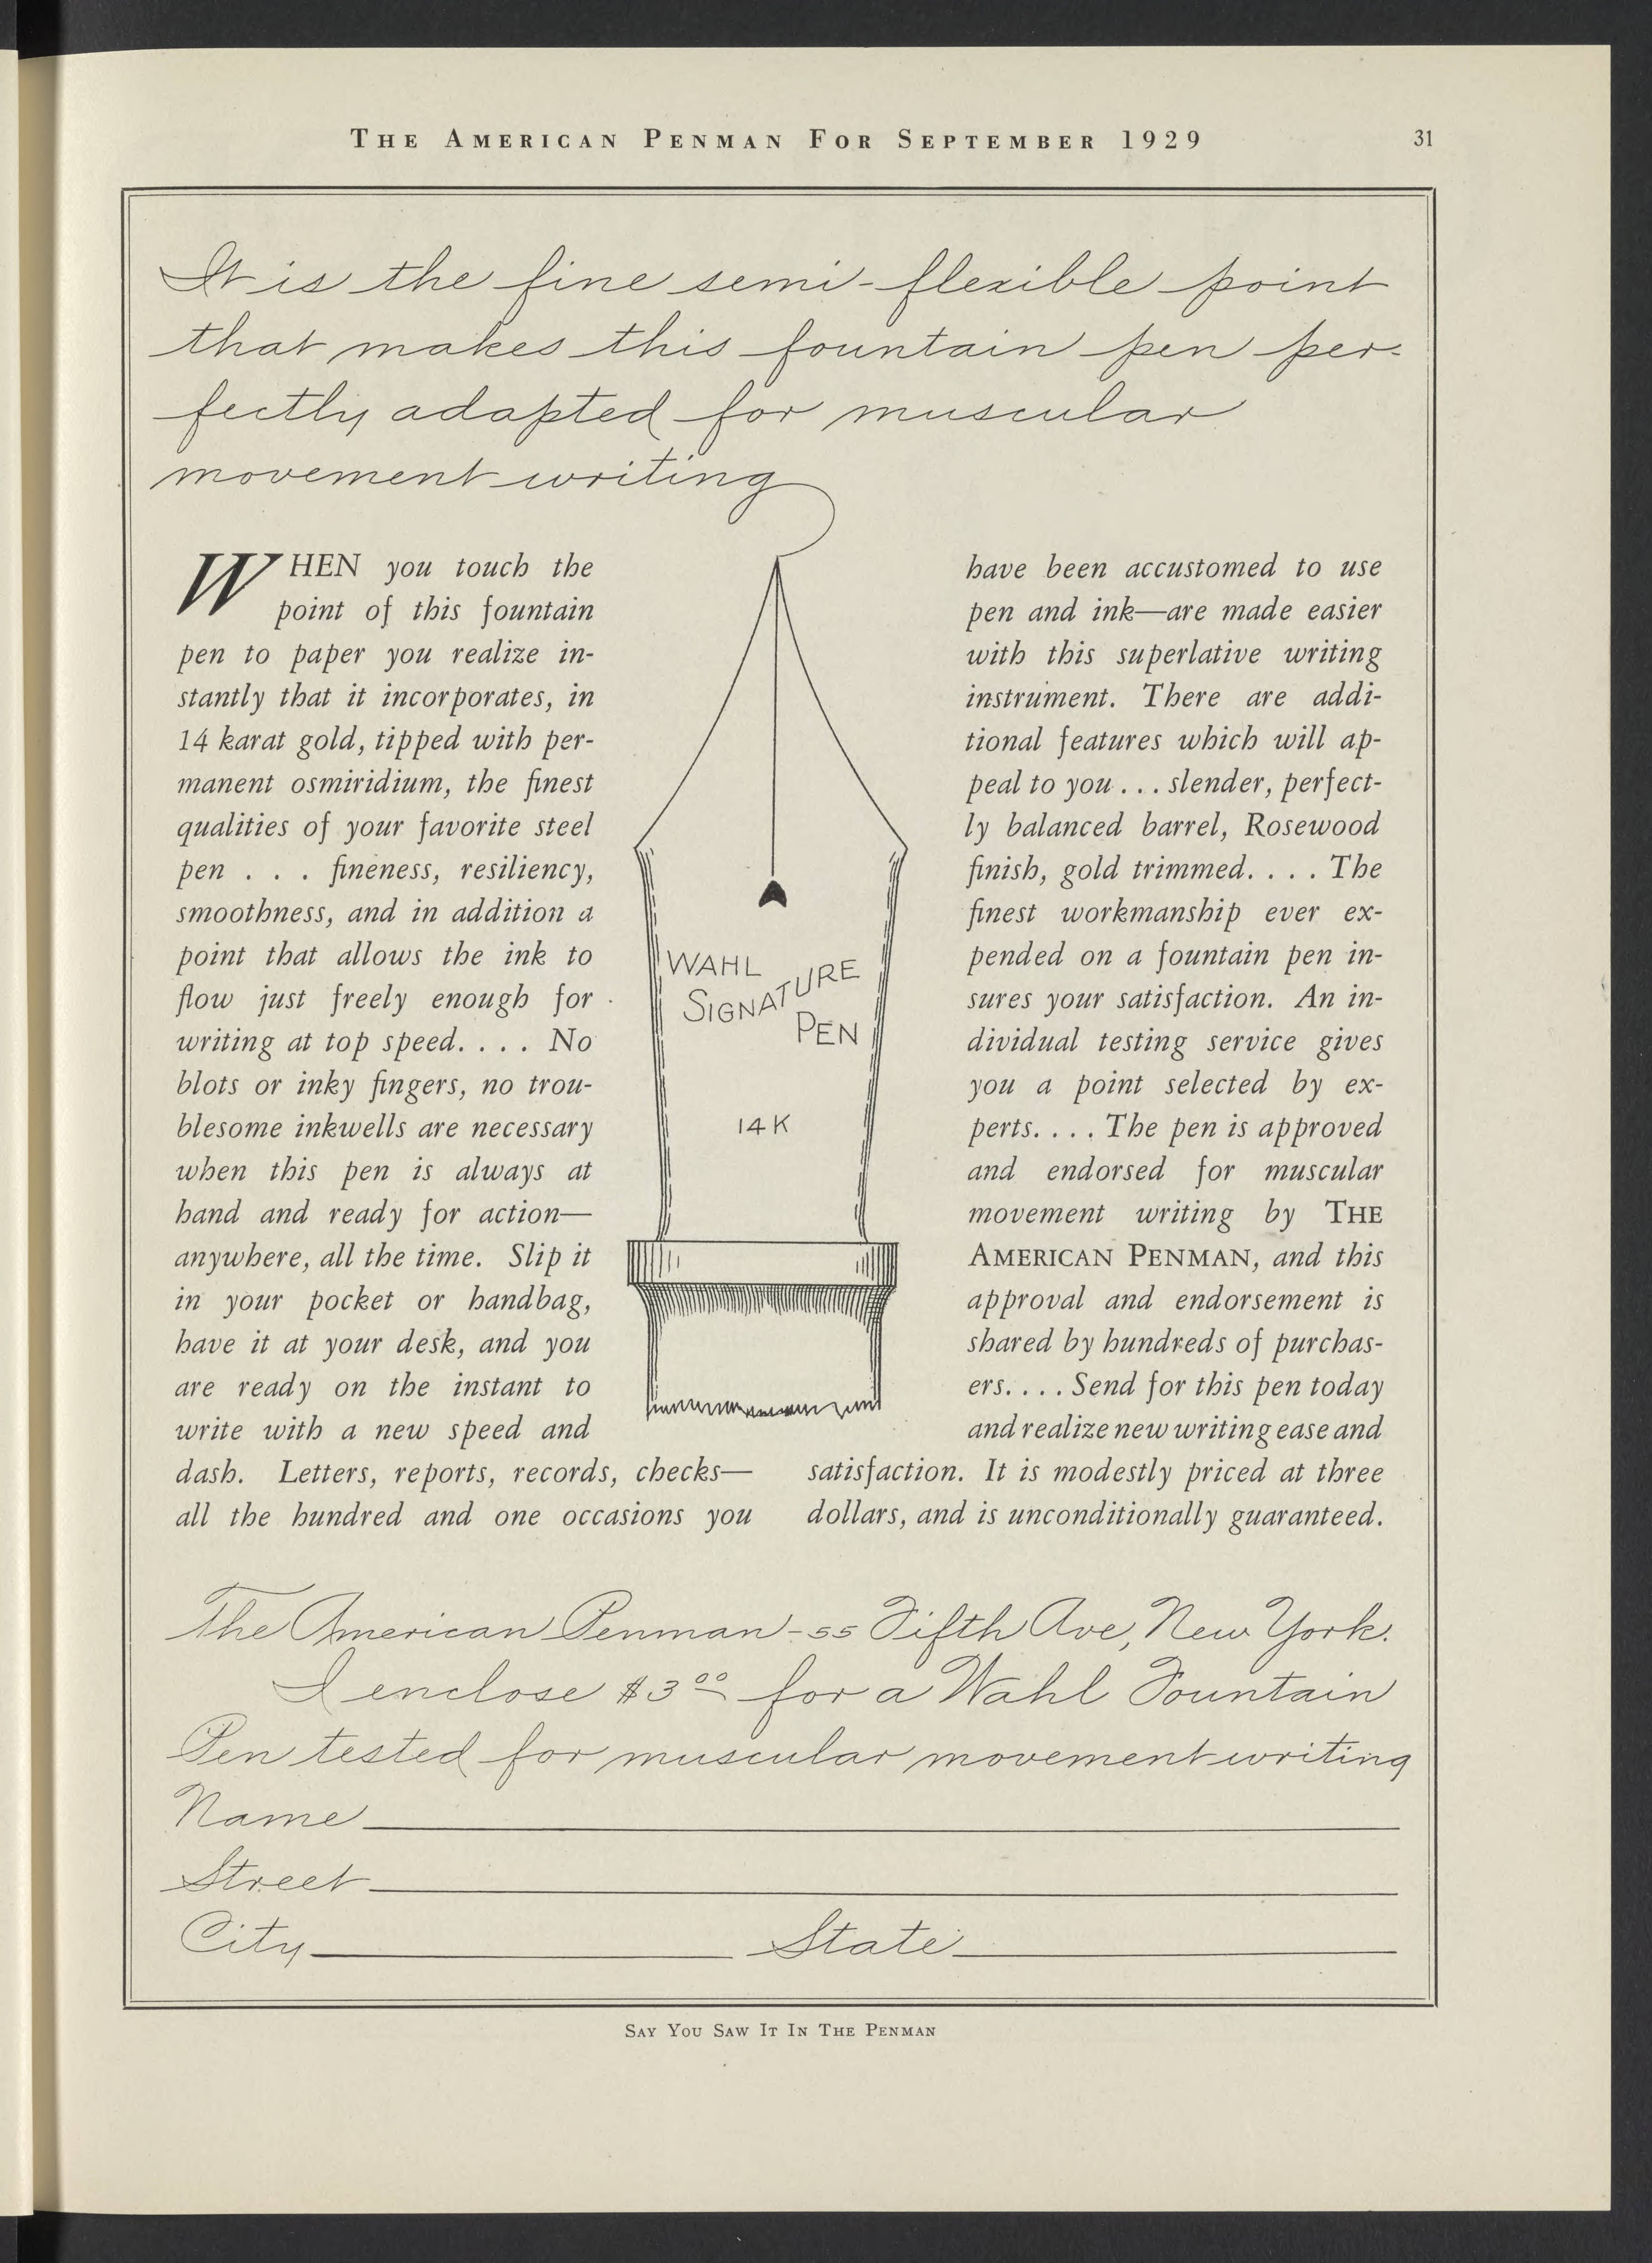 THE AMERICAN PENMAN FOR SEPTEMBER 1929
31
It is the fine semi-flexible point
that makes this fountain pen per-
fectly adapted for muscular
movement writing
WHEN you touch the
point of this fountain
pen to paper you realize in-
stantly that it incorporates, in
14 karat gold, tipped with per-
manent osmiridium, the finest
qualities of your favorite steel
pen . . . fineness, resiliency,
smoothness, and in addition a
point that allows the ink to
flow just freely enough for
writing at top speed. . . . No
blots or inky fingers, no trou-
blesome inkwells are necessary
when this pen is always at
hand and ready for action—
anywhere, all the time. Slip it
in your pocket or handbag,
have it at your desk, and you
are ready on the instant to
write with a new speed and
dash. Letters, reports, records, checks—
all the hundred and one occasions you
WAHL
SIGNATURE
PEN
14K
have been accustomed to use
pen and ink—are made easier
with this superlative writing
instrument. There are addi-
tional features which will ap-
peal to you . . . slender, perfect-
ly balanced barrel, Rosewood
finish, gold trimmed. . . . The
finest workmanship ever ex-
pended on a fountain pen in-
sures your satisfaction. An in-
dividual testing service gives
you a point selected by ex-
perts. . . . The pen is approved
and endorsed for muscular
movement writing by THE
AMERICAN PENMAN, and this
approval and endorsement is
shared by hundreds of purchas-
ers. . . . Send for this pen today
and realize new writing ease and
satisfaction. It is modestly priced at three
dollars, and is unconditionally guaranteed.
The American Penman - 55 Fifth Ave, New York.
I enclose $3.00 for a Wahl Fountain
Pen tested for muscular movement writing
Name
Street
City State
SAY YOU SAW IT IN THE PENMAN